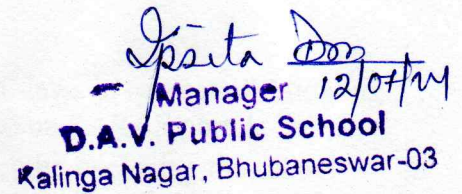 Ipsita Das
Manager 12/07/24
D.A.V. Public School
Kalinga Nagar, Bhubaneswar-03